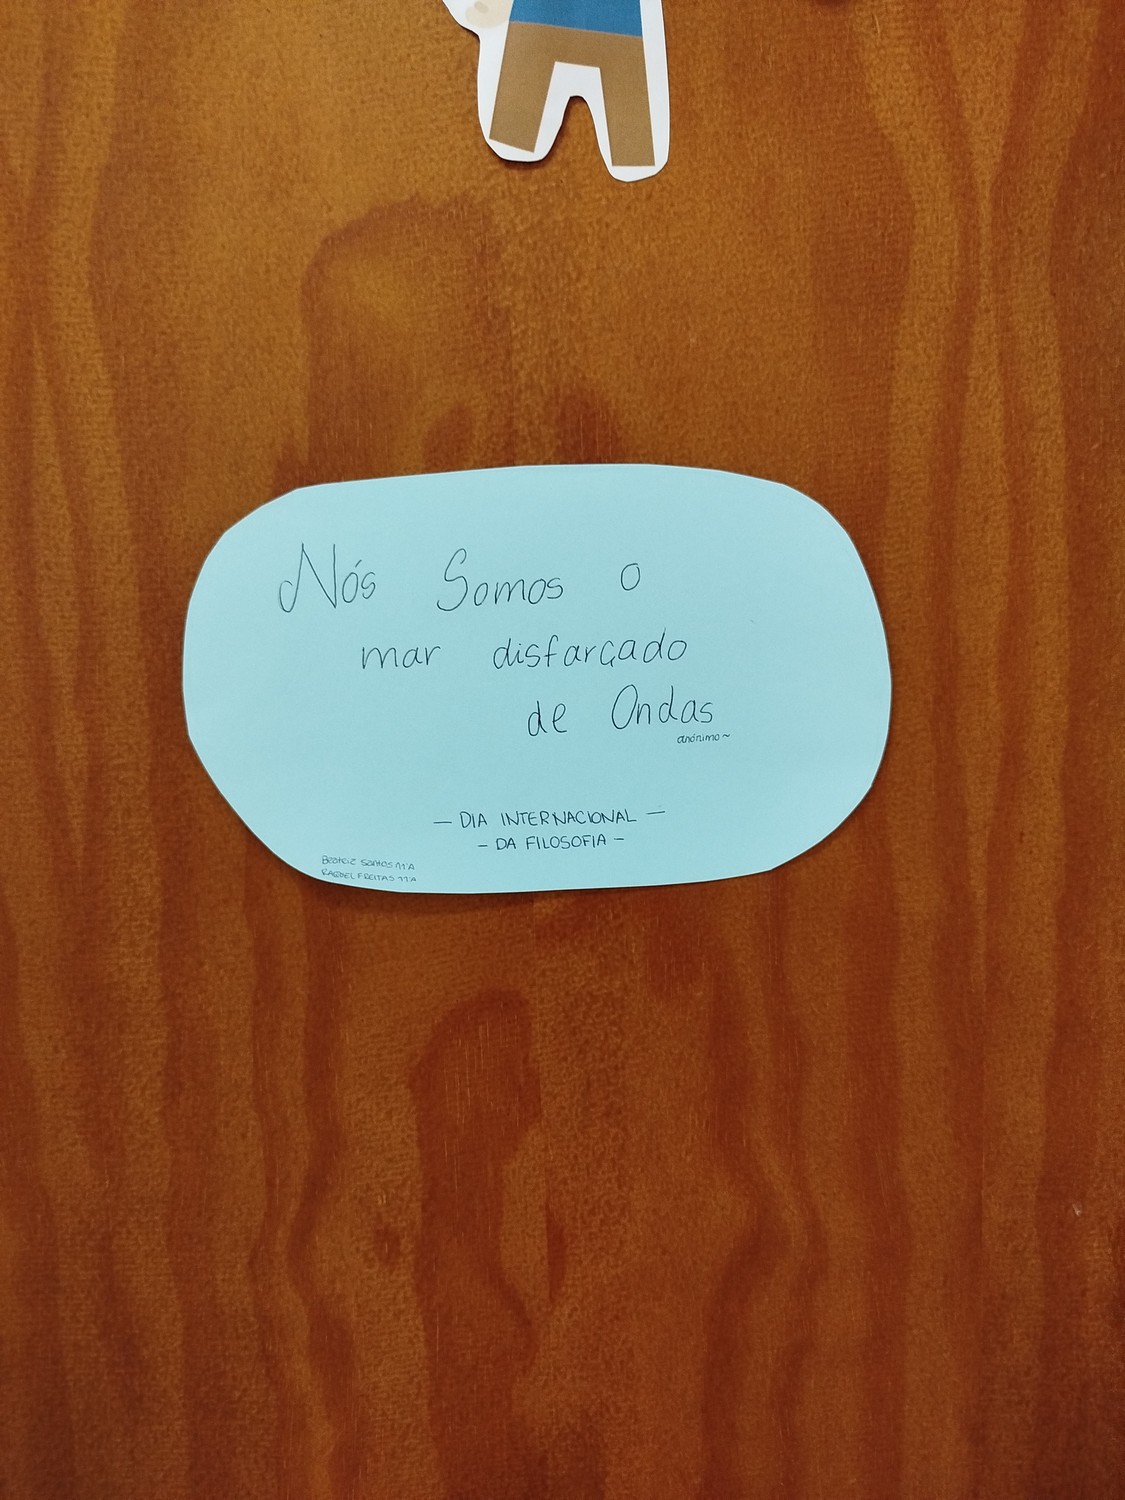 Nós Somos o
mar disfarçado
de Ondas
anónimo~
— DIA INTERNACIONAL —
- DA FILOSOFIA -
Beatriz Santos 11ºA
RAQUEL FREITAS 11ºA